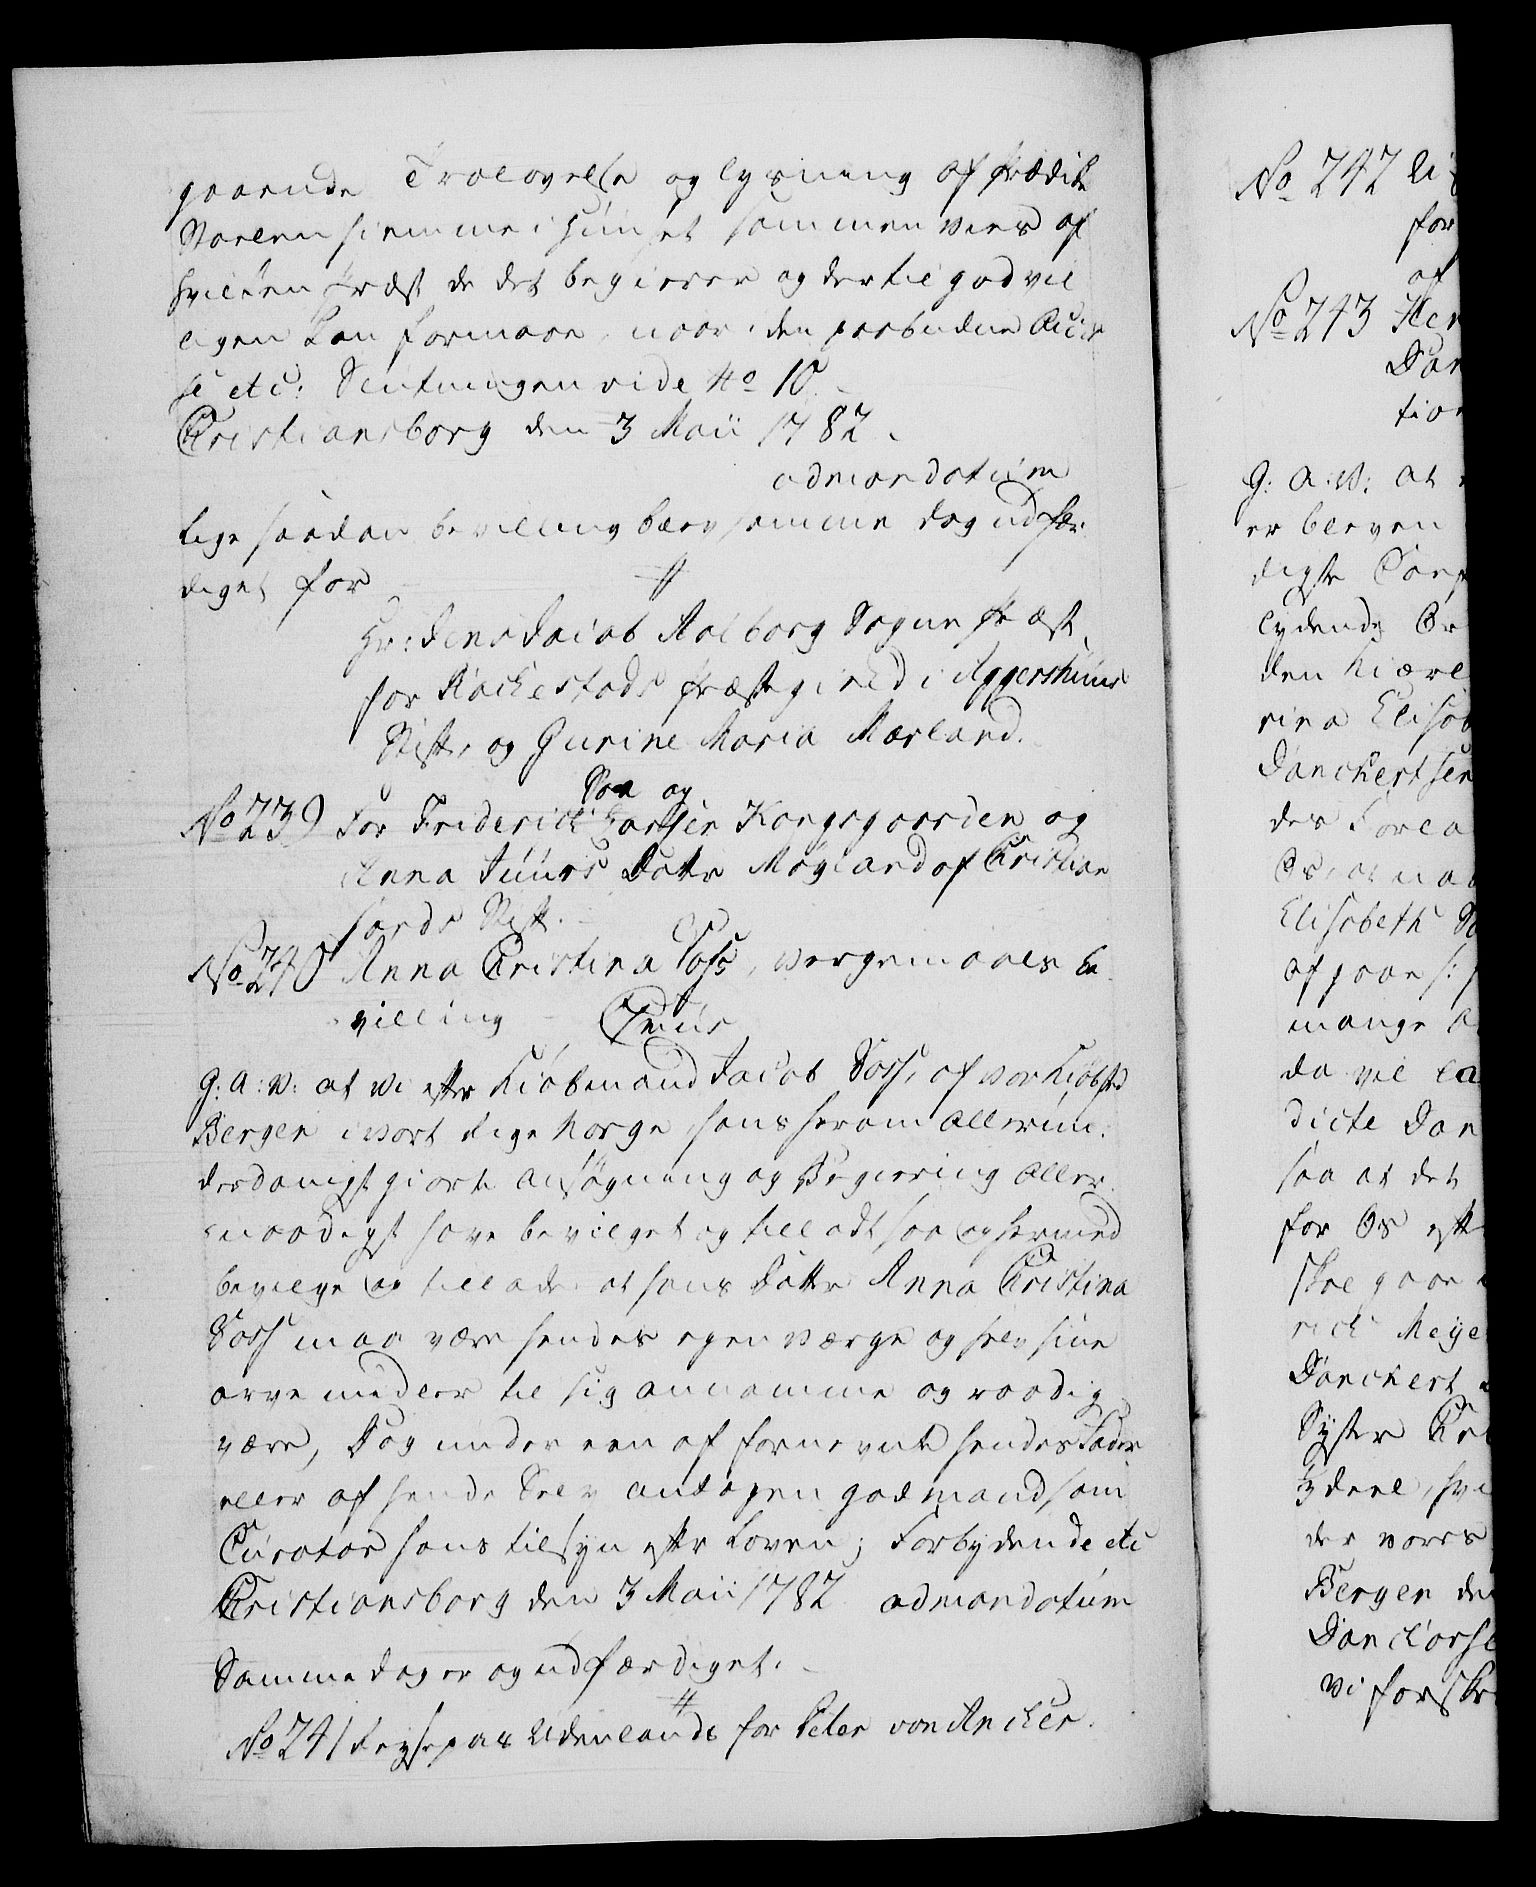 gaaende Trolovelse og Lysning af Prædike
Stoelen hiemme i Huuset sammen vies af
hvilken Præst de det begierer og dertil godvil
ligen kan formaae, naar i den forbudne
se etc: Slutningen vide No 10.
Christiansborg den 3 Maii 1782.
ad mandatum
Lige saadan bevilling blev samme dag udfær:
diget for
Hr: Jens Jacob Aalborg Sogne Præst
for Rackestads Præstegield i Aggershuus
Stift, og Gurine Maria Mærland.
Søn og
No 239 For Friderich Hansen Kongsgaarden og
Anna Juurs Datter Møgland af Christian
sands Stift.
No 240 Anna Christina Foss, Vergemaals be
villing
G: A: V: at Vi efter Kiøbmand Jacob Foss, af vor Kiøbsted
Bergen i vort Rige Norge, hans herom allerun:
derdanigst giorte Ansøgning og Begiering aller
naadigst have bevilget og tilladt, saa og hermed
bevilge og tillade at hans Datter Anna Christina
Foss maa være hendes egen Værge og selv sine
arve midler til sig annamme og raadig
være, Dog under een af fornevnte hendes Fader
eller af hende Selv antagen godmand som
Curator hans tilsyn efter Loven; Forbydende etc
Christiansborg den 3 Maii 1782 ad mandatum
Samme dag er og udfærdiget.
No 241 Reysepas Udenlands for Peter von Ancker.
No 242 Li
for
af
No 243 Her
Dan
tion
G: A: V: at
er bleven
digste
lydende Or
den kiære
rina Elisab
Danchertsen
des Forea
Os, at naa
Elisabeth
af gaae
mange
da vil la
dicte Dan
saa at det
for Os eft
skal gaae
rich Meye
Danchert
Syster
deel, hvi
der vores
Bergen den
Danckertse
Vi forskr